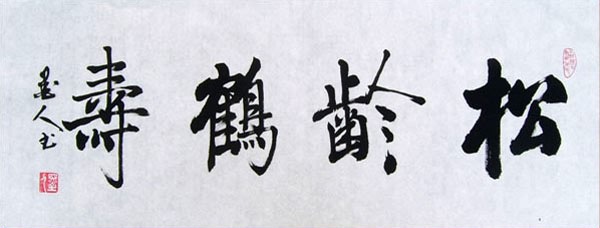 松齡鶴壽
人书